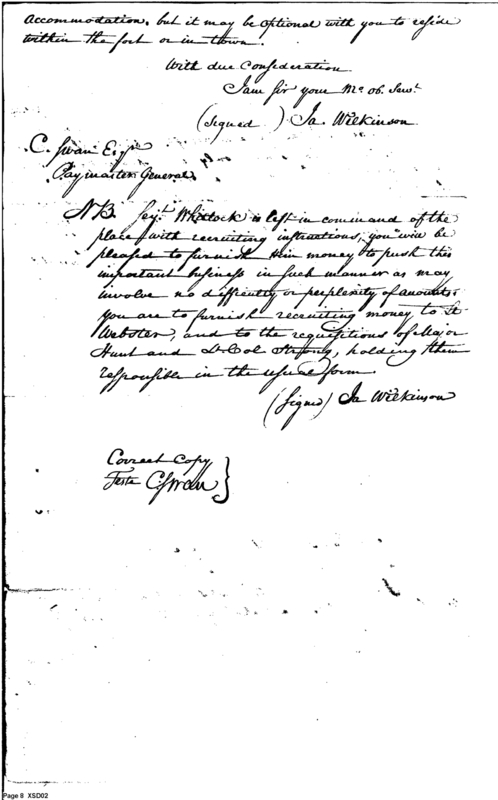 accommodation, but it may be optional with you to reside
within the fort or in town.
With due consideration
I am sir your Mo. ob. Servt.
(signed) Ja. Wilkinson
C. Swan Esqr.
Paymaster General.
NB. Whitlock is left in command of the
place with recruiting instructions, you will be
pleased to furnish him money to push this
important business in such manner as may
involve no difficulty or perplexity of amounts.
you are to furnish recruiting money to Lt
Webster, and to the requisitions of Major
Hunt and Lt Col Strong, holding them
responsible in the usual form.
(signed) Ja Wilkinson
Correct Copy
Teste C. Swan
Page 8 XSD02